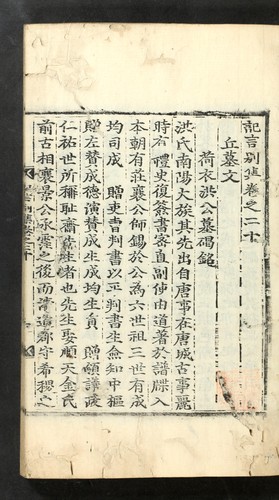 記言別集卷之二十
丘墓文
荷衣洪公墓碣銘
洪氏南陽大族其先出自唐事在唐城古事麗
時有禮史復簽書客直副使由道著於譜牒入
本朝有莊襄公師錫於公為六世祖三世有成
均司成 贈吏曹判書以平判書生僉知中樞
贈左贊成德演贊成生成均生員 贈領議政
仁祐世所稱恥齋先生者也先生娶順天金氏
前古相襄景公承霔之後而清道郡守希稷之